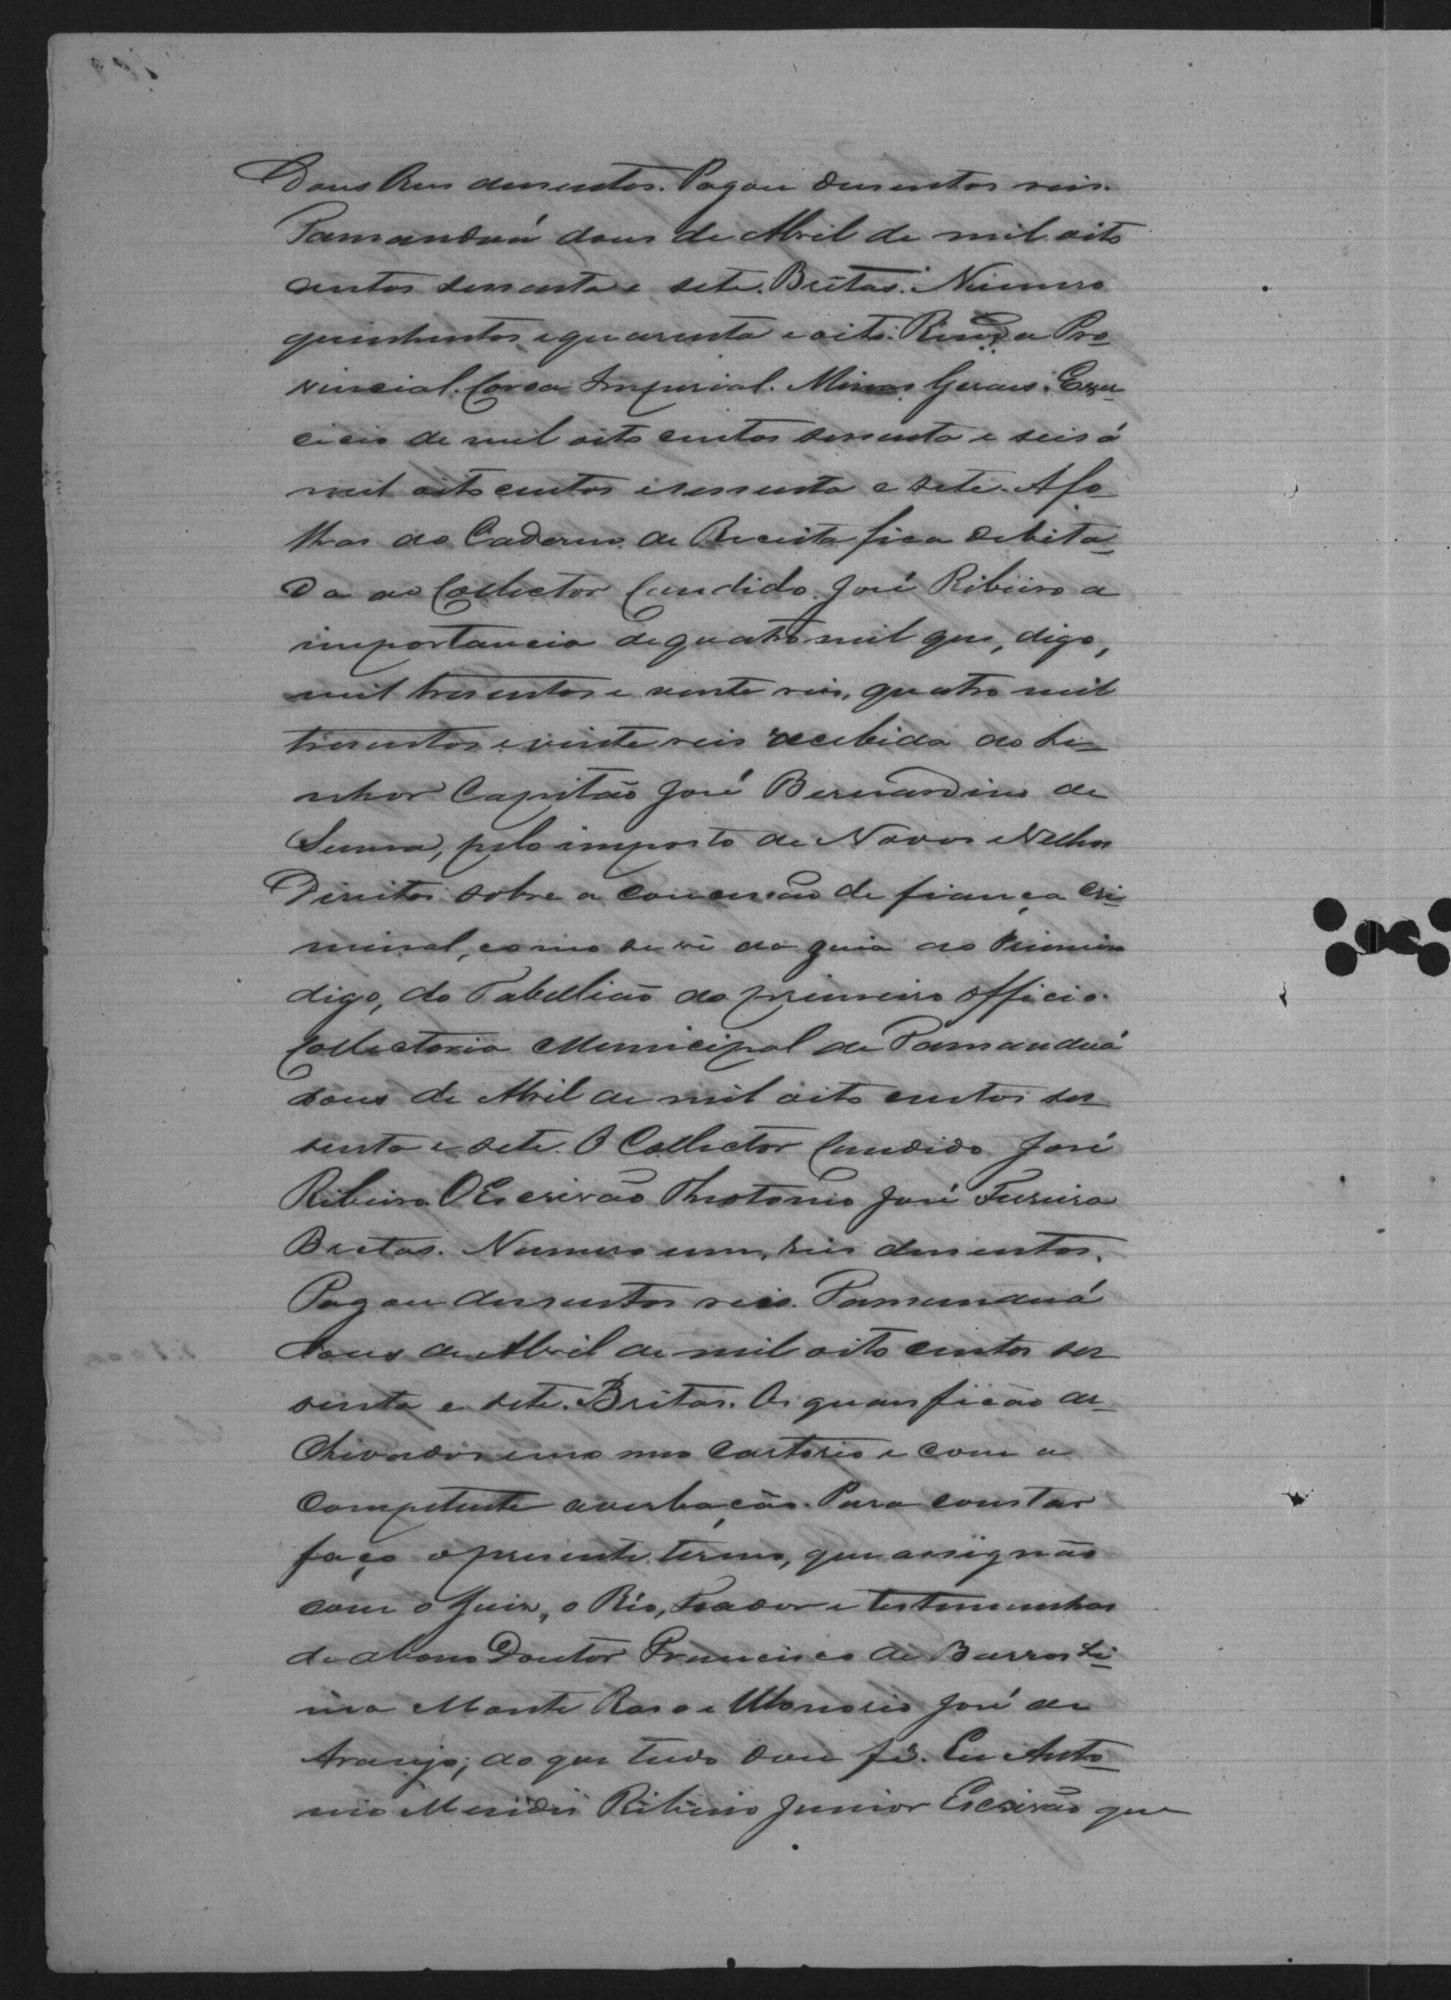 Dous Reis dusentos. Pagou dusentos reis.
Tamanduá dous de Abril de mil oito
centos sessenta e sete. Brêtas. Numero
quinhentos e quarenta e oito. Renda Pro-
vincial. Coroa Imperial. Minas Geraes. Exer-
cicio de mil oito centos sessenta e seis á
mil oito centos e sessenta e sete. A fo-
lhas do Caderno de Receita fica debita-
da ao Collector Candido José Ribeiro a
importancia de quatro mil que, digo,
mil tresentos e vinte reis, quatro mil
tresentos e vinte reis recebida do Se-
nhor Capitão José Bernardino de
pelo imposto de Novos e Velhos
Direitos sobre a concessão de fiança cri-
minal, como se vê da guia do Primeiro
digo, do Tabellião do primeiro officio.
Collectoria Municipal de Tamanduá
dous de Abril de mil oito centos ses-
senta e sete. O Collector Candido José
Ribeiro. O Escrivão Theotonio José Ferreira
Bretas. Numero um, reis dusentos.
Pagou dusentos reis. Tamanduá
dous de Abril de mil oito centos ses-
senta e sete. Britas. Os quaes ficão ar-
chivados em meo cartorio e com a
competente averbação. Para constar
faço o presente termo, que assignão
com o Juiz, o Réo, fiador e testemunhas
de abono Doutor Francisco de Barros Li-
ma Monte Raso e Honorio José de
Araujo; do que tudo dou fé. Eu Anto-
nio Ribeiro Junior Escrivão que